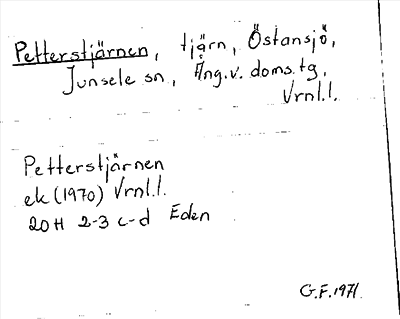 Petterstjärnen, tjärn, Östansjö,
Junsele sn, Ång.v. doms.tg,
Vrnl.l.
Petterstjärnen
ek (1970) Vrnl.l.
20H 2-3 c-d Eden
G.F. 1971.